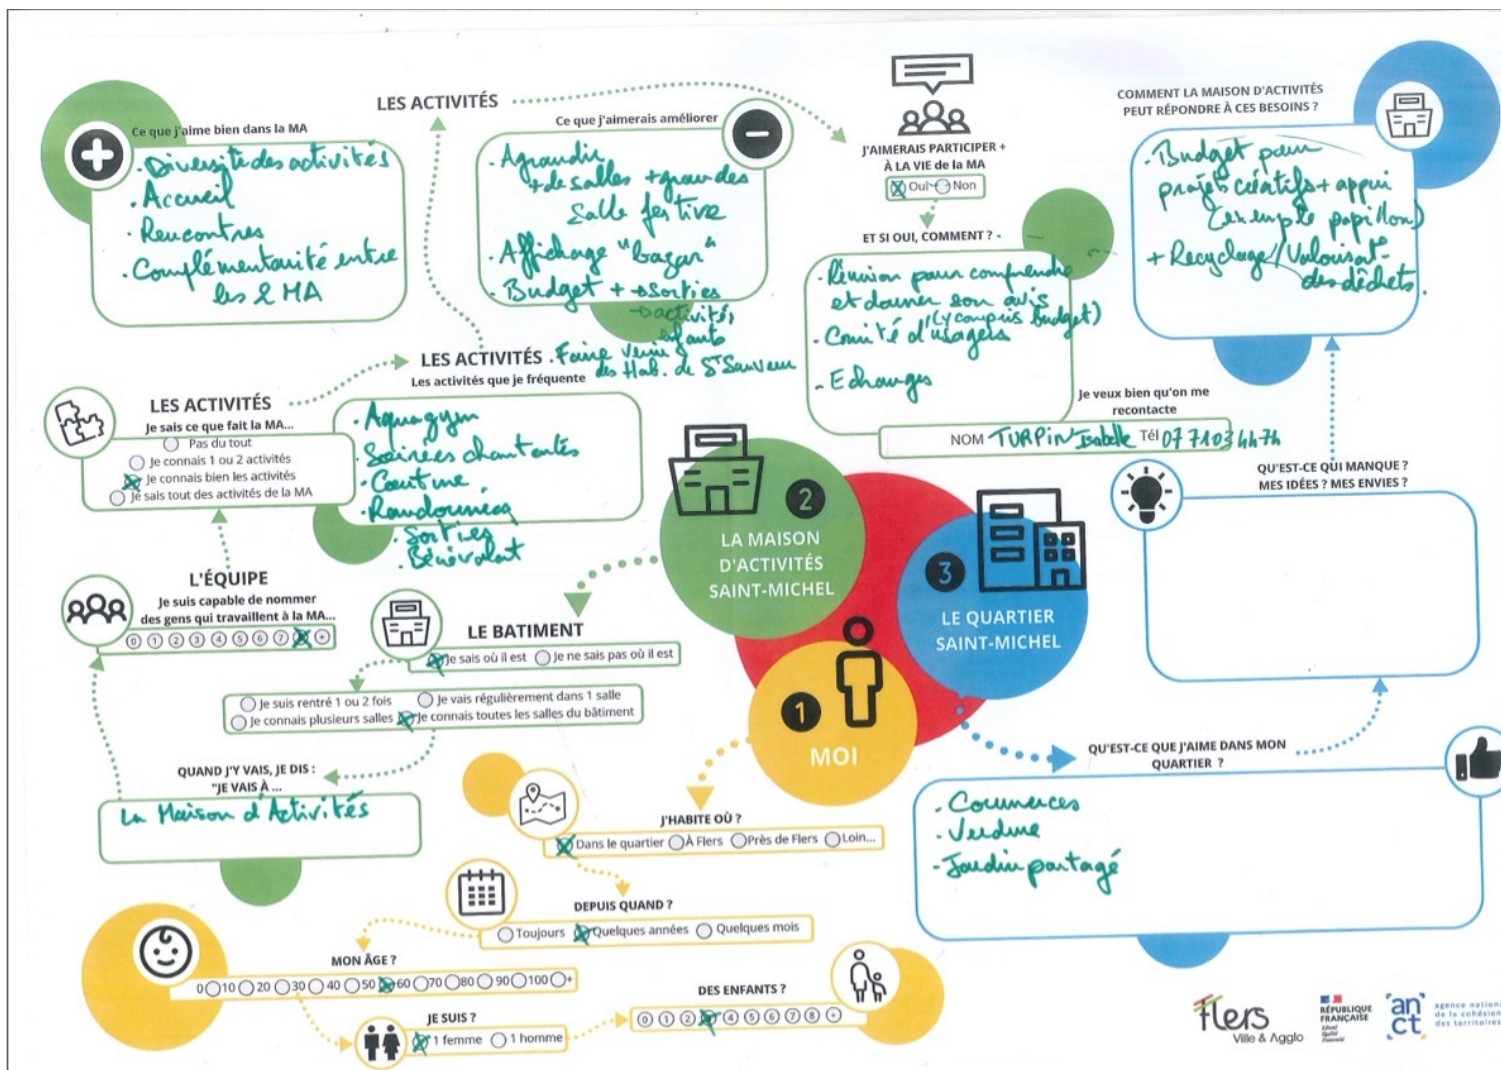 LES ACTIVITÉS
Ce que j'aime bien dans la MA
- Diversité des activités
- Accueil
- Rencontres
- Complémentarité entre
les 2 MA
Ce que j'aimerais améliorer
- Agrandir
+ de salles + grandes
Salle festive
- Affichage "bazar"
- Budget + → Sorties
→ activités
enfants
- Faire venir
des Hab. de St Sauveur
J'AIMERAIS PARTICIPER +
À LA VIE de la MA
Oui Non
ET SI OUI, COMMENT ?
- Réunion pour comprendre
et donner son avis
(y compris budget)
- Comité d'usagers
- Echanges
Je veux bien qu'on me
recontacte
NOM TURPIN Isabelle Tél 07 71 03 44 74
COMMENT LA MAISON D'ACTIVITÉS
PEUT RÉPONDRE À CES BESOINS ?
- Budget pour
projets créatifs + appui
(exemple papillon)
+ Recyclage/Valorisat°
des déchets.
LES ACTIVITÉS
Les activités que je fréquente
- Aquagym
- Soirées chantantes
- Couture
- Randonnées
- Sorties
- Bénévolat
LES ACTIVITÉS
Je sais ce que fait la MA...
Pas du tout
Je connais 1 ou 2 activités
Je connais bien les activités
Je sais tout des activités de la MA
L'ÉQUIPE
Je suis capable de nommer
des gens qui travaillent à la MA...
0 1 2 3 4 5 6 7 +
LE BATIMENT
Je sais où il est Je ne sais pas où il est
Je suis rentré 1 ou 2 fois Je vais régulièrement dans 1 salle
Je connais plusieurs salles Je connais toutes les salles du bâtiment
QUAND J'Y VAIS, JE DIS :
"JE VAIS À ...
La Maison d'Activités
2
LA MAISON
D'ACTIVITÉS
SAINT-MICHEL
3
LE QUARTIER
SAINT-MICHEL
1
MOI
QU'EST-CE QUI MANQUE ?
MES IDÉES ? MES ENVIES ?
QU'EST-CE QUE J'AIME DANS MON
QUARTIER ?
- Commerces
- Verdure
- Jardin partagé
J'HABITE OÙ ?
Dans le quartier À Flers Près de Flers Loin...
DEPUIS QUAND ?
Toujours Quelques années Quelques mois
MON ÂGE ?
0 10 20 30 40 50 60 70 80 90 100 +
JE SUIS ?
1 femme 1 homme
DES ENFANTS ?
0 1 2 4 5 6 7 8 +
flers
Ville & Agglo
RÉPUBLIQUE
FRANÇAISE
Liberté
Égalité
Fraternité
an
ct
agence nationa
de la cohésion
des territoires